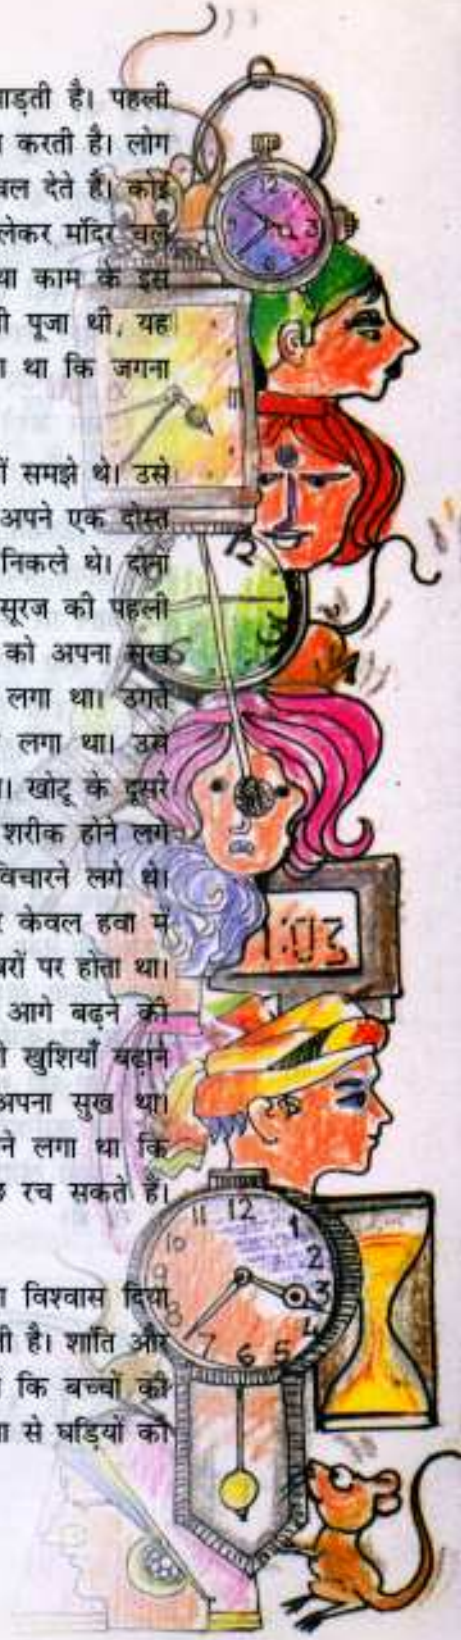 ाड़ती है। पहली
करती है। लोग
चल देते है। कोई
लेकर मंदिर चल
था काम के इस
ी पूजा थी, यह
ा था कि जगना
ीं समझे थे। उसे
अपने एक दोस्त
निकले थे। दोनों
सूरज की पहली
को अपना सुख
लगा था। उगते
लगा था। उसे
ा। खोटू के दूसरे
शरीक होने लगे
विचारने लगे थे।
र केवल हवा में
बरों पर होता था।
आगे बढ़ने की
ो खुशियाँ बढ़ाने
अपना सुख था।
ने लगा था कि
छ रच सकते हैं।
ा विश्वास दिया
ती है। शांति और
ा कि बच्चों की
ा से घड़ियों की
12
3
6
9
12
1:03
11 12 1
10 2
9 3
8 4
7 6 5